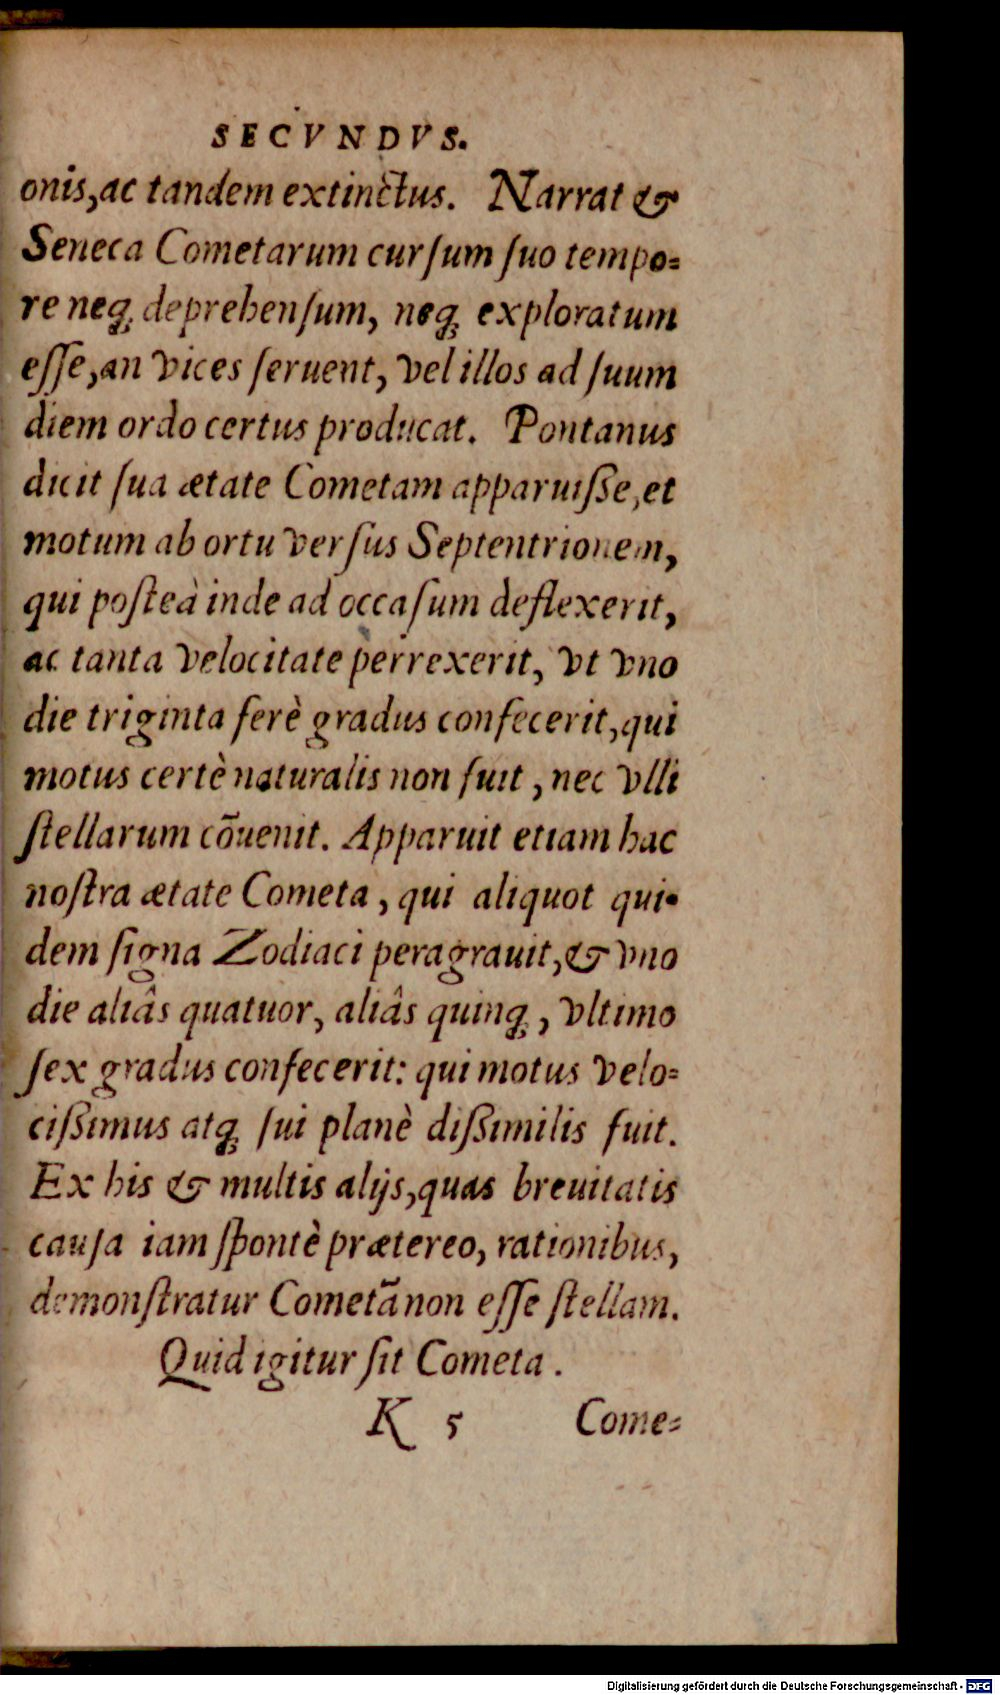 SECVNDVS.
onis, ac tandem extinctus. Narrat &
Seneca Cometarum curſum ſuo tempo=
re neq; deprehenſum, neq; exploratum
eſſe, an vices ſeruent, vel illos ad ſuum
diem ordo certus producat. Pontanus
dicit ſua ætate Cometam apparuiſſe, et
motum ab ortu verſus Septentrionem,
qui poſteà inde ad occaſum deflexerit,
ac tanta velocitate perrexerit, vt vno
die triginta ferè gradus confecerit, qui
motus certè naturalis non fuit, nec vlli
ſtellarum cõuenit. Apparuit etiam hac
noſtra ætate Cometa, qui aliquot qui-
dem ſigna Zodiaci peragrauit, & vno
die aliâs quatuor, aliâs quinq;, vltimo
ſex gradus confecerit: qui motus velo=
ciſſimus atq; ſui planè diſſimilis fuit.
Ex his & multis alijs, quas breuitatis
cauſa iam ſpontè prætereo, rationibus,
demonſtratur Cometã non eſſe ſtellam.
Quid igitur ſit Cometa.
K 5 Come=
Digitalisierung gefördert durch die Deutsche Forschungsgemeinschaft - DFG